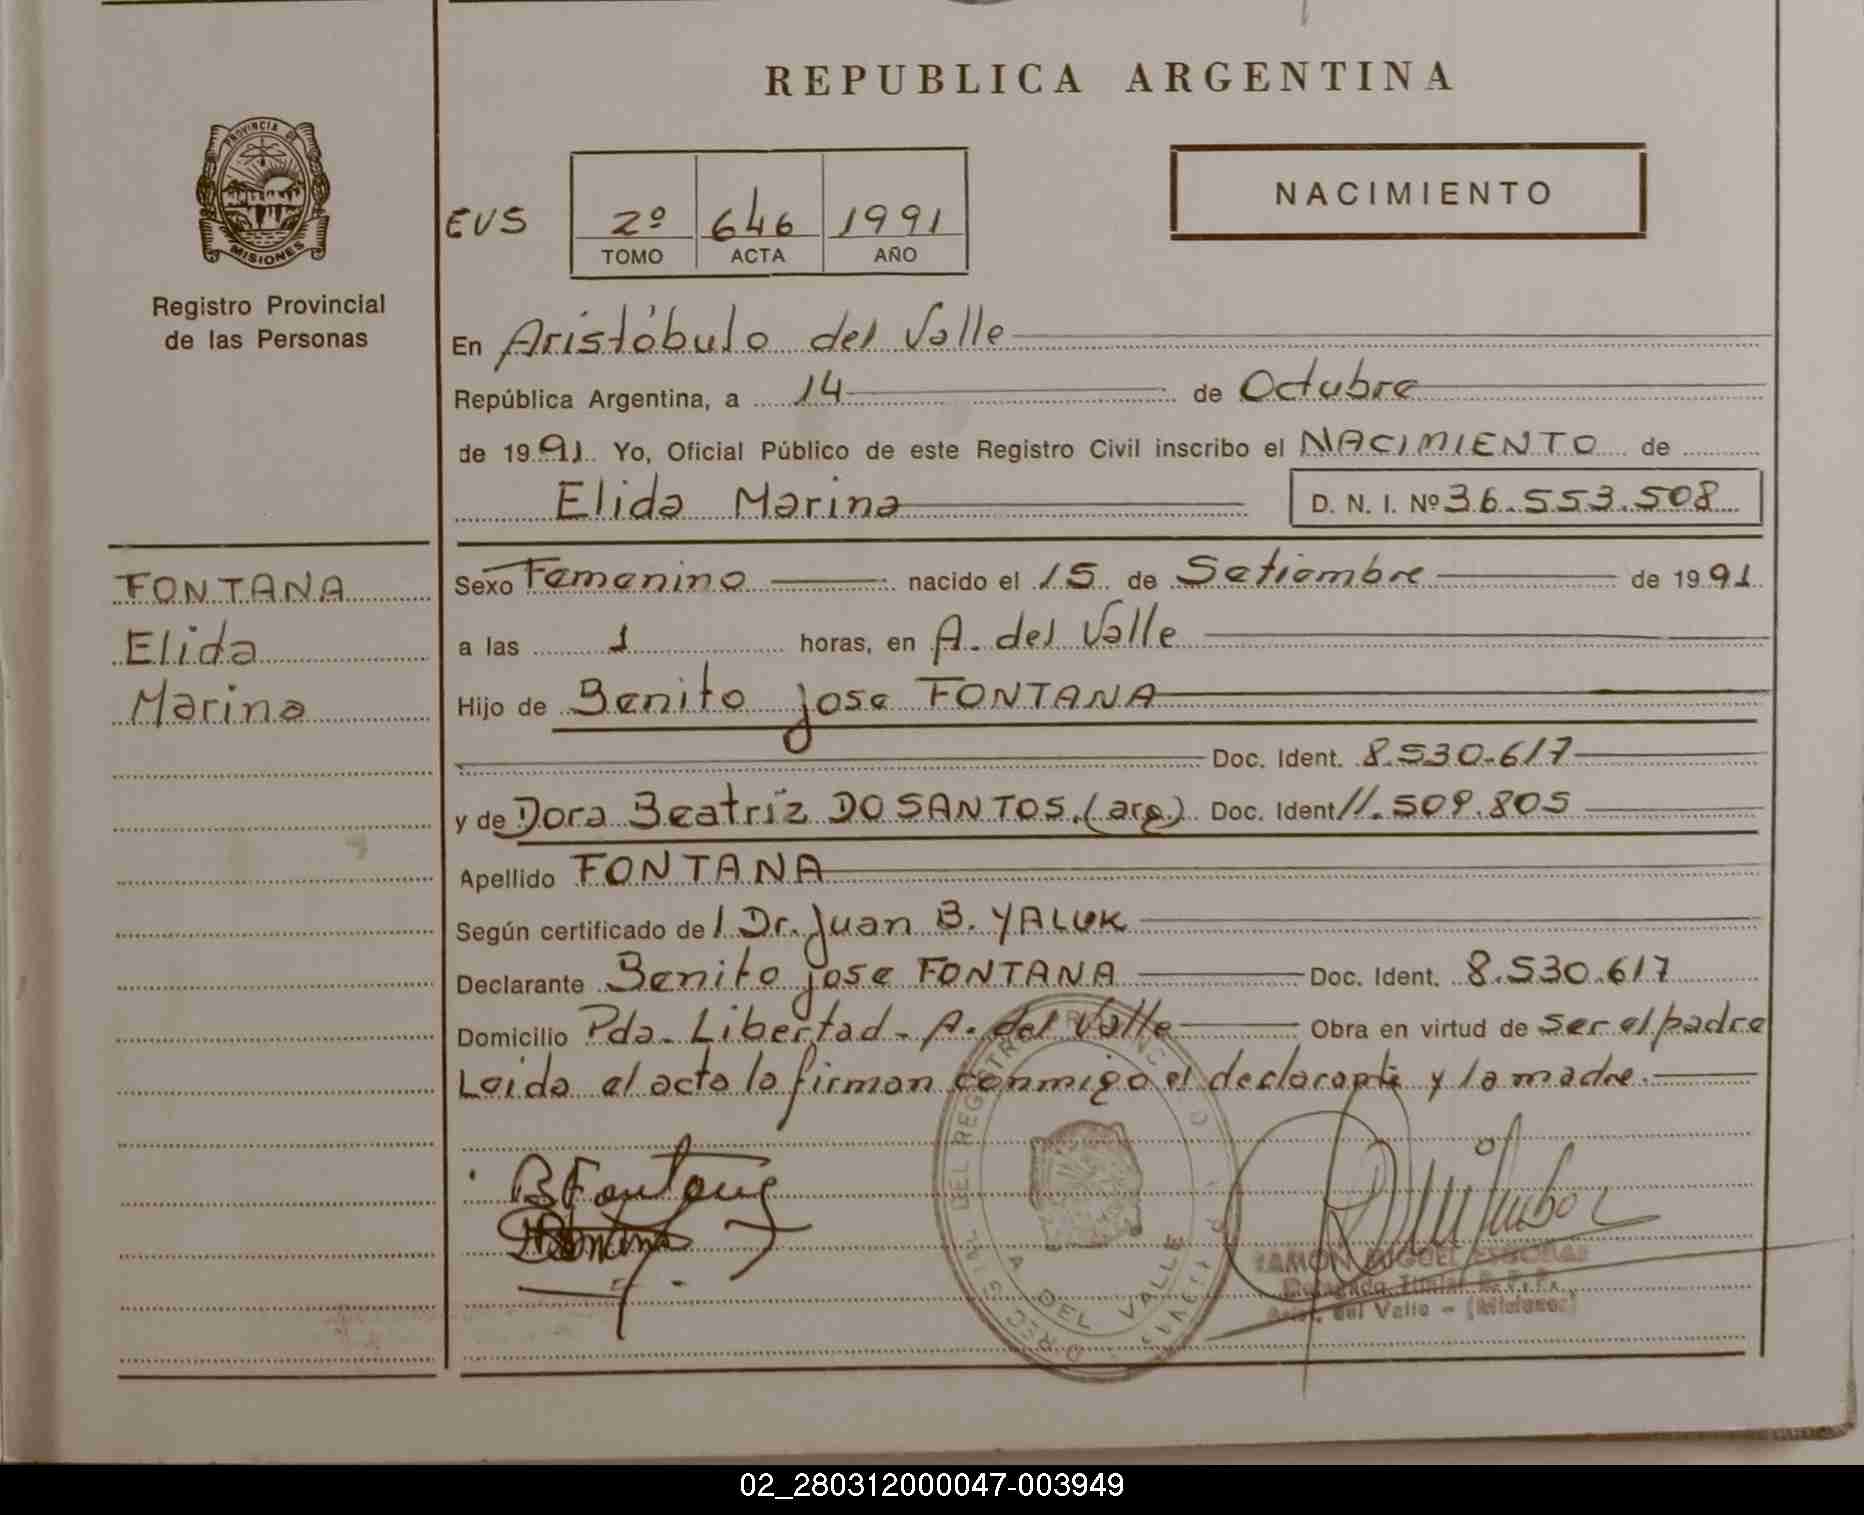 REPUBLICA ARGENTINA
PROVINCIA DE
MISIONES
Registro Provincial
de las Personas
NACIMIENTO
EVS 2º 646 1991
TOMO ACTA AÑO
En Aristóbulo del Valle
República Argentina, a 14 de Octubre
de 1991 Yo, Oficial Público de este Registro Civil inscribo el NACIMIENTO de
Elida Marina D. N. I. Nº 36.553.508
FONTANA
Elida
Marina
Sexo Femenino nacido el 15 de Setiembre de 1991
a las 1 horas, en A. del Valle
Hijo de Benito jose FONTANA
Doc. Ident. 8.530.617
y de Dora Beatriz DO SANTOS (arg) Doc. Ident 11.509.805
Apellido FONTANA
Según certificado de l Dr. Juan B. YALUK
Declarante Benito jose FONTANA Doc. Ident. 8.530.617
Domicilio Pda. Libertad - A. del Valle Obra en virtud de ser el padre
Leida el acta la firman conmigo el declarante y la madre.
B Fontana
A DEL VALLE
RAMON MIGUEL ESCOBAR
Delegado Titular R.P.P.
Arist. del Valle - (Misiones)
02_280312000047-003949